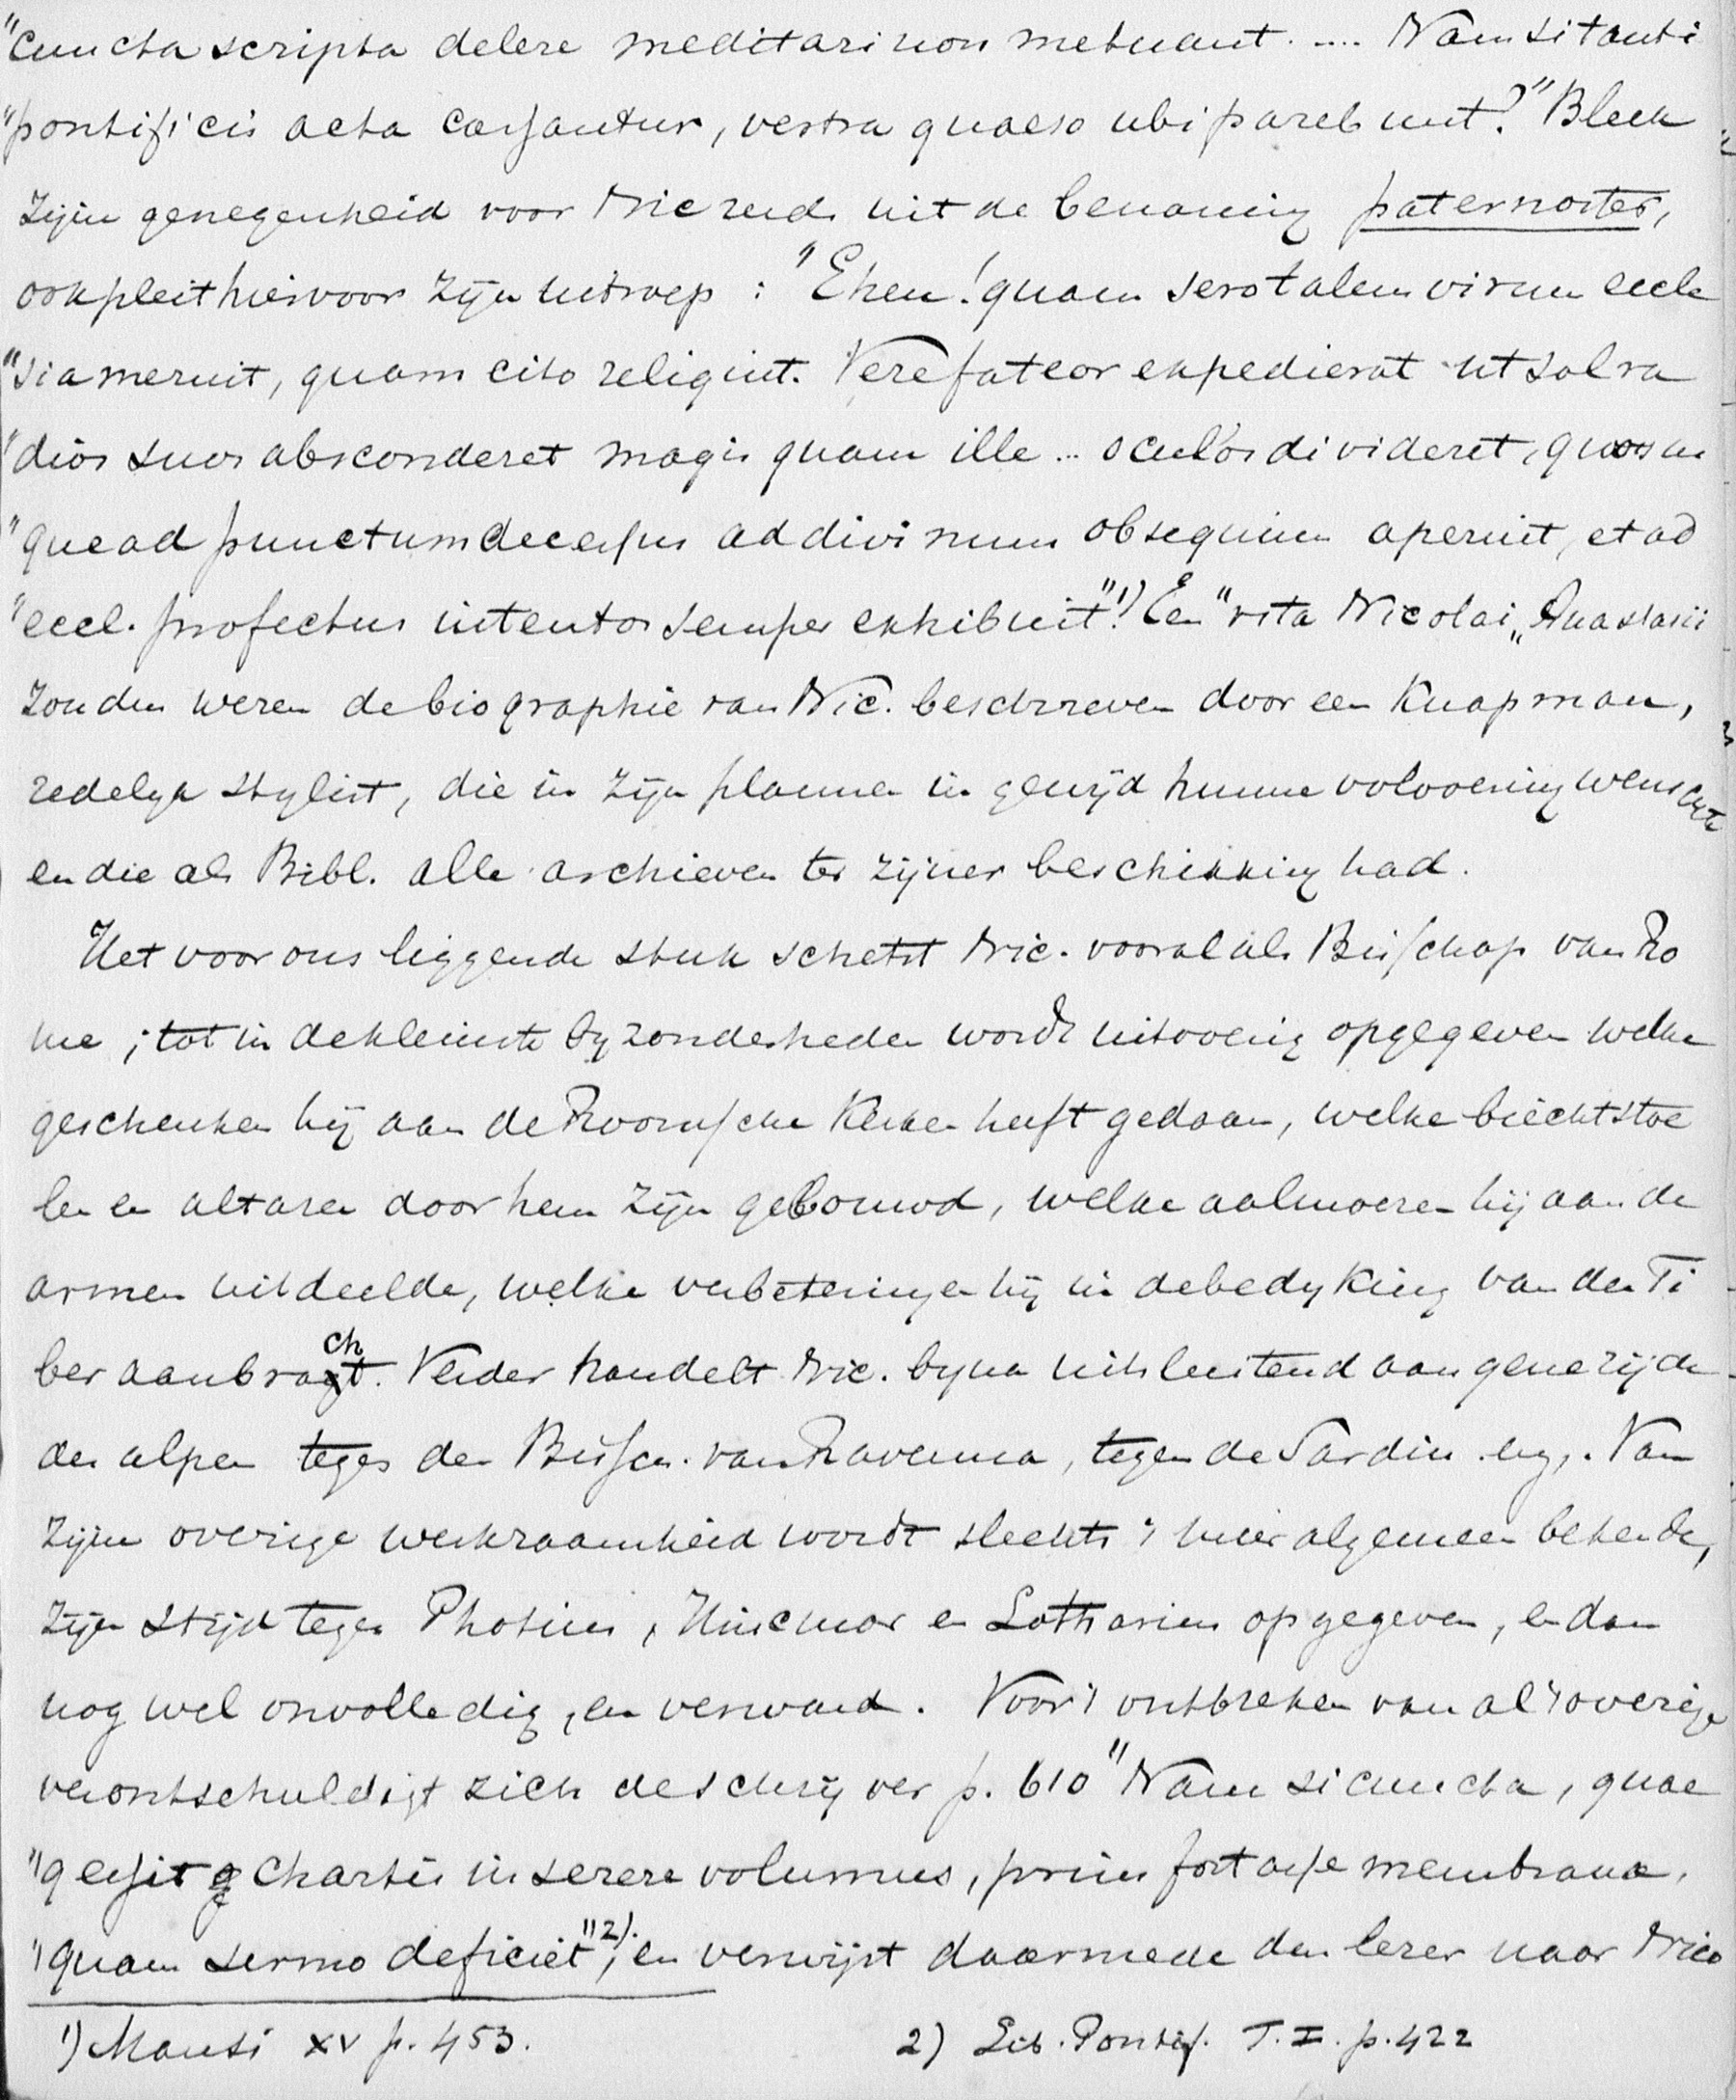 "cuncta scripta delere meditari non metuant. .... Nam si tanti
"pontificis acta cassantur, vestra quaeso ubi parebunt?" Bleek
zijne genegenheid voor Nic reeds uit de benaming paternoster,
ook pleit hiervoor zijn uitroep : "Eheu! quam sero talem virum eccle
"sia meruit, quam cito reliquit. Vere fateor expedierat ut sol ra
"dios suos absconderet magis quam ille ... oculos divideret, quos us
"que ad punctum decessus ad divinum obsequium aperuit, et ad
"eccl. profectus intentos semper exhibuit"!1) Een "vita Nicolai" Anastasii
zouden weren de biographie van Nic. beschreven door een knap man,
redelyk stylist, die in zijn plannen in gewijd hunne volvoering wenschte
en die als Bibl. alle archieven ter zijner beschikking had.
Het voor ons liggende stuk schetst Nic. vooral als Bisschop van Ro
me ; tot in de kleinste byzonderheden wordt uitvoerig opgegeven welke
geschenken hij aan de Roomsche Kerken heeft gedaan, welke biechtstoe
len en altaren door hem zijn gebouwd, welke aalmoezen hij aan de
armen uitdeelde, welke verbeteringen hij in de bedyking van den Ti
ber aanbracht. Verder handelt Nic. byna uitsluitend aan gene zijde
der alpen tegen den Bissch. van Ravenna, tegen de Sardin .eng,. Van
zijne overige werkzaamheid wordt slechts 't meer algemeen bekende,
zijn strijd tegen Photius, Hincmar en Lotharius opgegeven, en dan
nog wel onvolledig, en verward. Voor 't ontbreken van al 't overige
verontschuldigt zich de schrijver p. 610 "Nam si cuncta, quae
"gessit chartis inserere volumus, prius fortasse membrana,
"quam sermo deficiet"2), en verwijst daarmede den lezer naar Nico
1) Mansi XV p. 453.
2) Lib. Pontif. T. I. p. 422